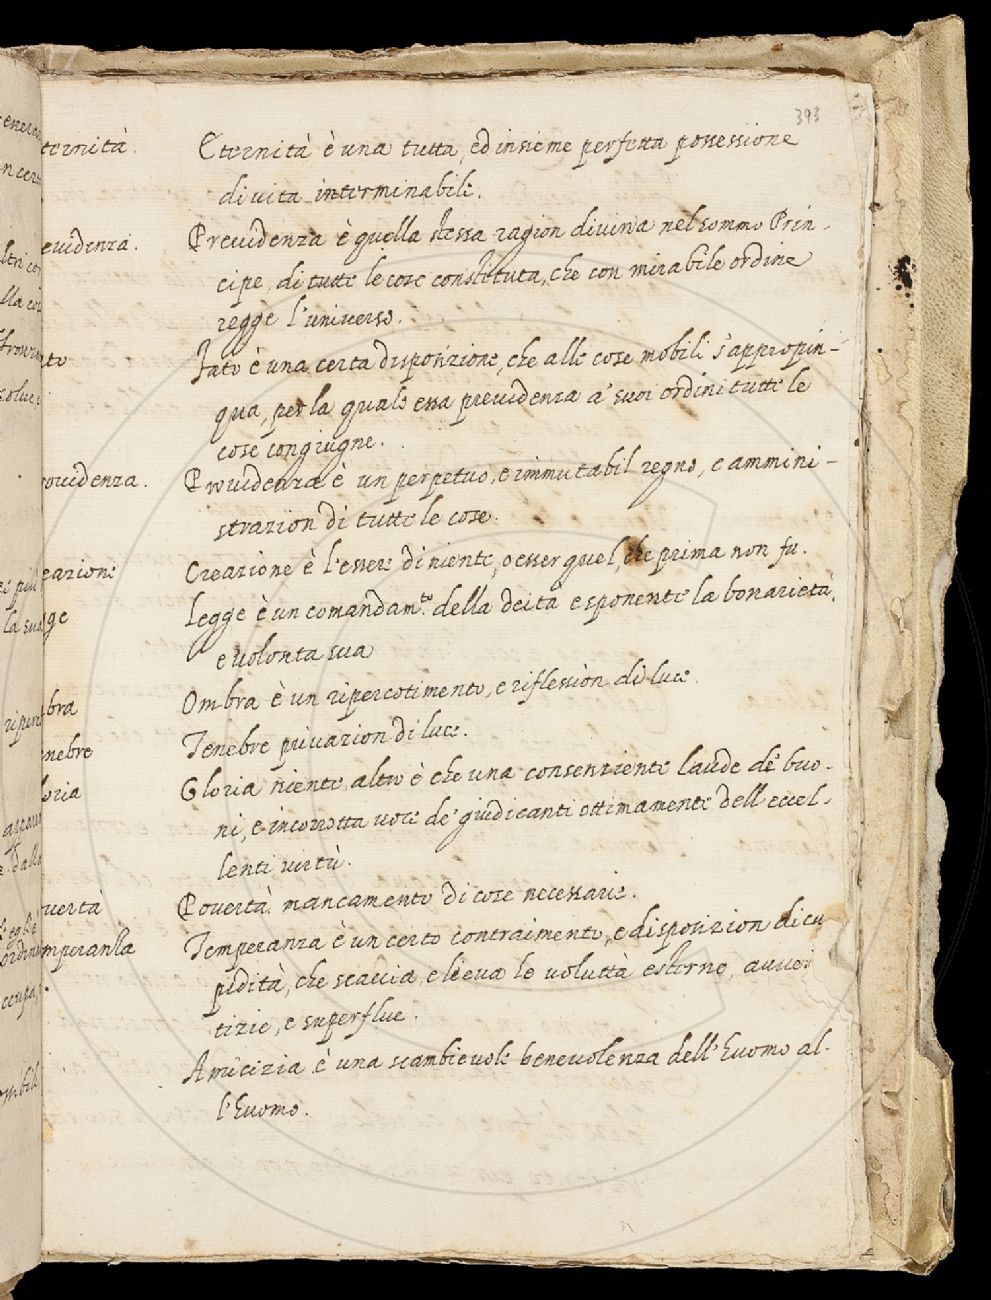 393
ternità. Eternità è una tutta, ed insieme perfetta possessione
di vita interminabile.
evidenza. Previdenza è quella stessa ragion divina nel sommo Prin-
cipe, di tutte le cose constituta, che con mirabile ordine
regge l'universo.
ato Fato è una certa disposizione, che alle cose mobili s'appropin-
qua, per la quale essa previdenza a' suoi ordini tutte le
cose congiugne.
rovidenza. Provvidenza è un perpetuo, e immutabil regno, e ammini-
strazion di tutte le cose.
eazione Creazione è l'essere di niente, o esser quel, che prima non fu.
gge Legge è un comandam.to della deità esponente la bonarietà,
e volontà sua
bra Ombra è un ripercotimento, e riflession di luce.
enebre Tenebre privazion di luce.
oria Gloria niente altro è che una consenziente laude de' buo-
ni, e incorrotta voce de' giudicanti ottimamente dell'eccel-
lenti virtù.
vertà Povertà mancamento di cose necessarie.
mperanza Temperanza è un certo contraimento, e disposizion di cu
pidità, che scaccia, e lieva le voluttà esterne, avve
tizie, e superflue.
Amicizia è una scambievole benevolenza dell'huomo al-
l'huomo.